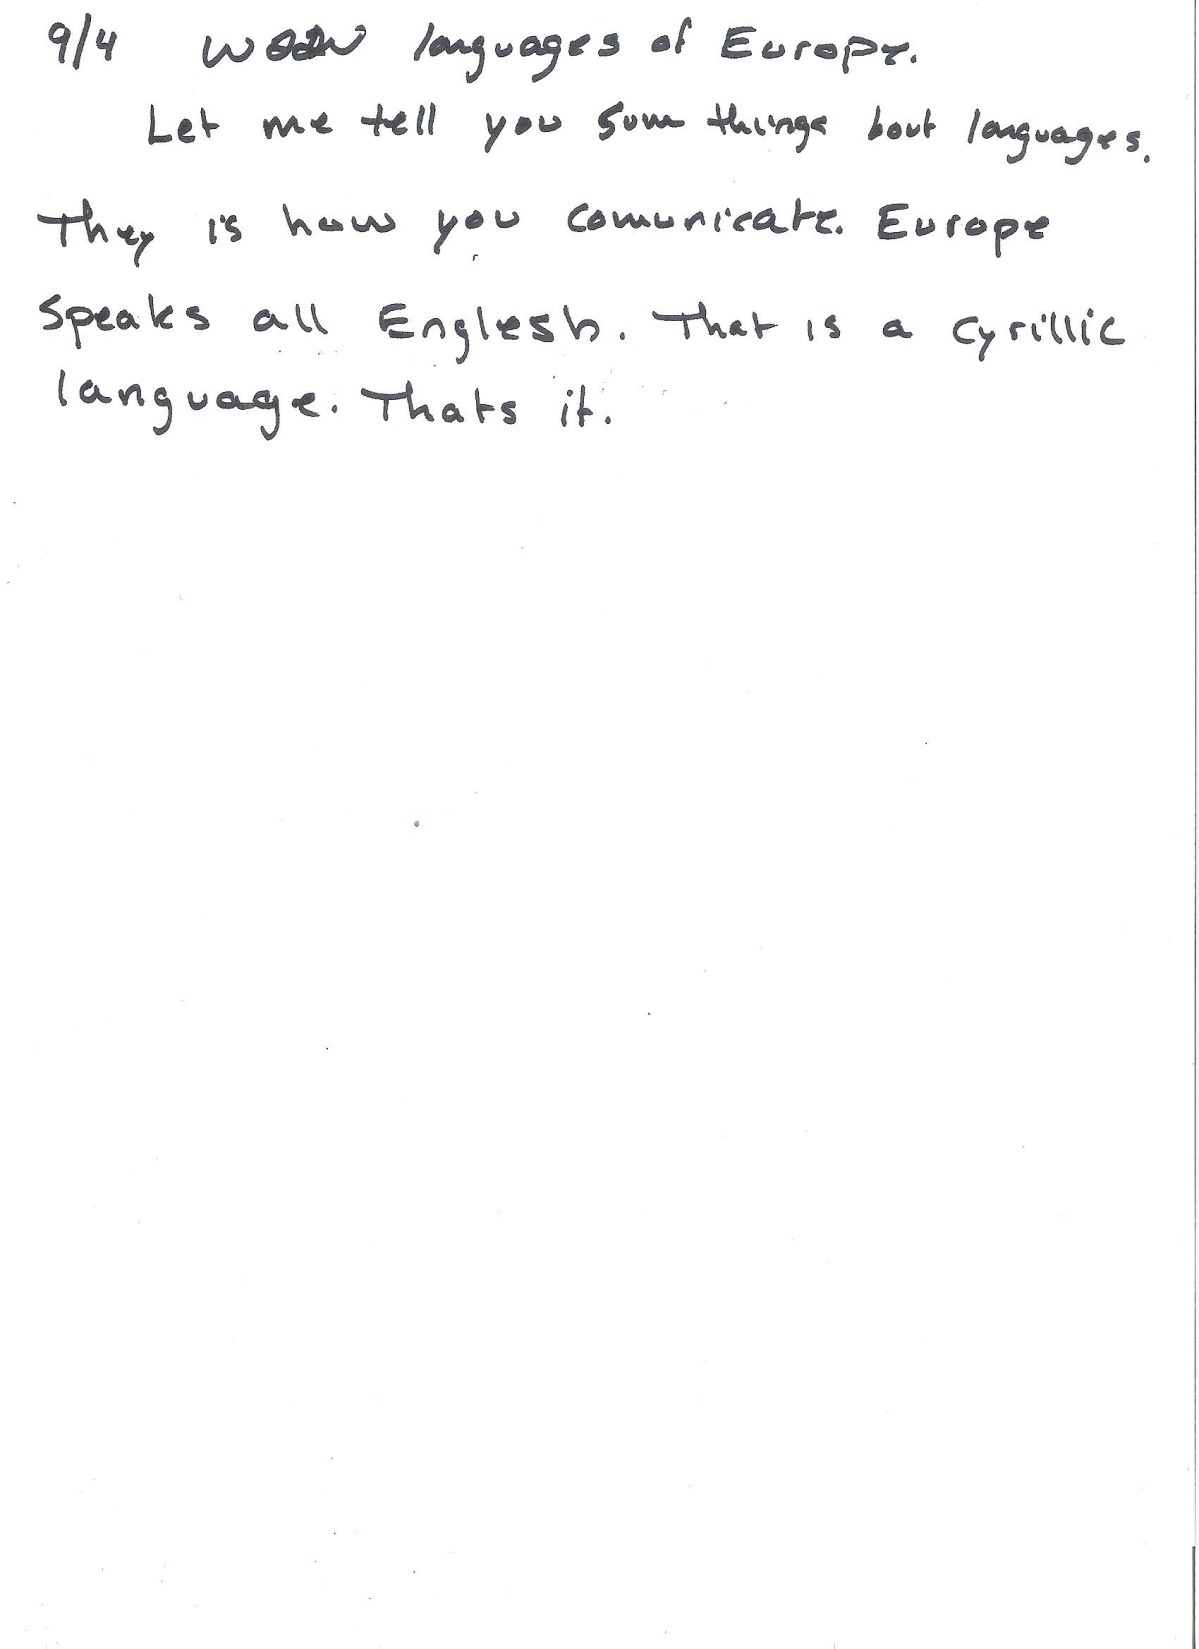 9/4 languages of Europe.
Let me tell you sum things bout languages.
They is how you comunicate. Europe
speaks all Englesh. That is a cyrillic
language. Thats it.